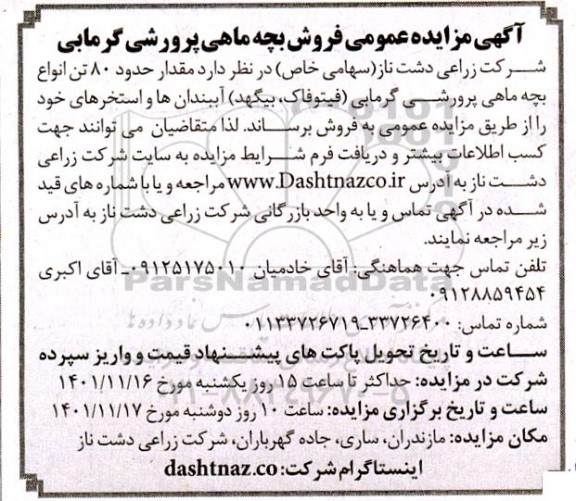 آگهی مزایده عمومی فروش بچه ماهی پرورشی گرمابی
شرکت زراعی دشت ناز(سهامی خاص) در نظر دارد مقدار حدود ۸۰ تن انواع
بچه ماهی پرورشی گرمابی (فیتوفاک، بیگهد) آببندان ها و استخرهای خود
را از طریق مزایده عمومی به فروش برساند. لذا متقاضیان می توانند جهت
کسب اطلاعات بیشتر و دریافت فرم شرایط مزایده به سایت شرکت زراعی
دشت ناز به آدرس www.Dashtnazco.ir مراجعه و یا با شماره های قید
شده در آگهی تماس و یا به واحد بازرگانی شرکت زراعی دشت ناز به آدرس
زیر مراجعه نمایند.
ParsNamadData
تلفن تماس جهت هماهنگی: آقای خادمیان ۰۹۱۲۵۱۷۵۰۱۰ـ آقای اکبری
۰۹۱۲۸۸۵۹۴۵۴
شماره تماس: ۳۳۷۲۶۴۰۰ـ۰۱۱۳۳۷۲۶۷۱۹
ساعت و تاریخ تحویل پاکت های پیشنهاد قیمت و واریز سپرده
شرکت در مزایده: حداکثر تا ساعت ۱۵ روز یکشنبه مورخ ۱۴۰۱/۱۱/۱۶
ساعت و تاریخ برگزاری مزایده: ساعت ۱۰ روز دوشنبه مورخ ۱۴۰۱/۱۱/۱۷
مکان مزایده: مازندران، ساری، جاده گهرباران، شرکت زراعی دشت ناز
اینستاگرام شرکت: dashtnaz.co